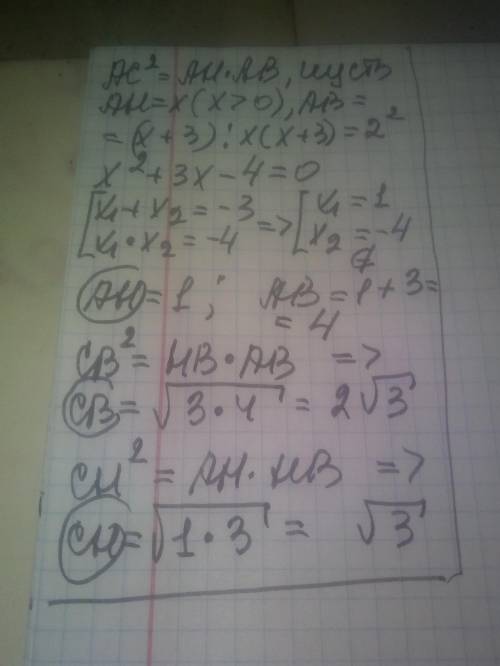 AC² = AH·AB, пусть
AH = x (x > 0), AB =
= (x + 3) ; x(x+3) = 2²
x² + 3x - 4 = 0
[x₁ + x₂ = -3 => [x₁ = 1
x₁ · x₂ = -4 x₂ = -4
∉
AH = 1 ; AB = 1 + 3 =
= 4
CB² = HB · AB =>
CB = √3·4 = 2√3
CH² = AH · HB =>
CH = √1·3 = √3